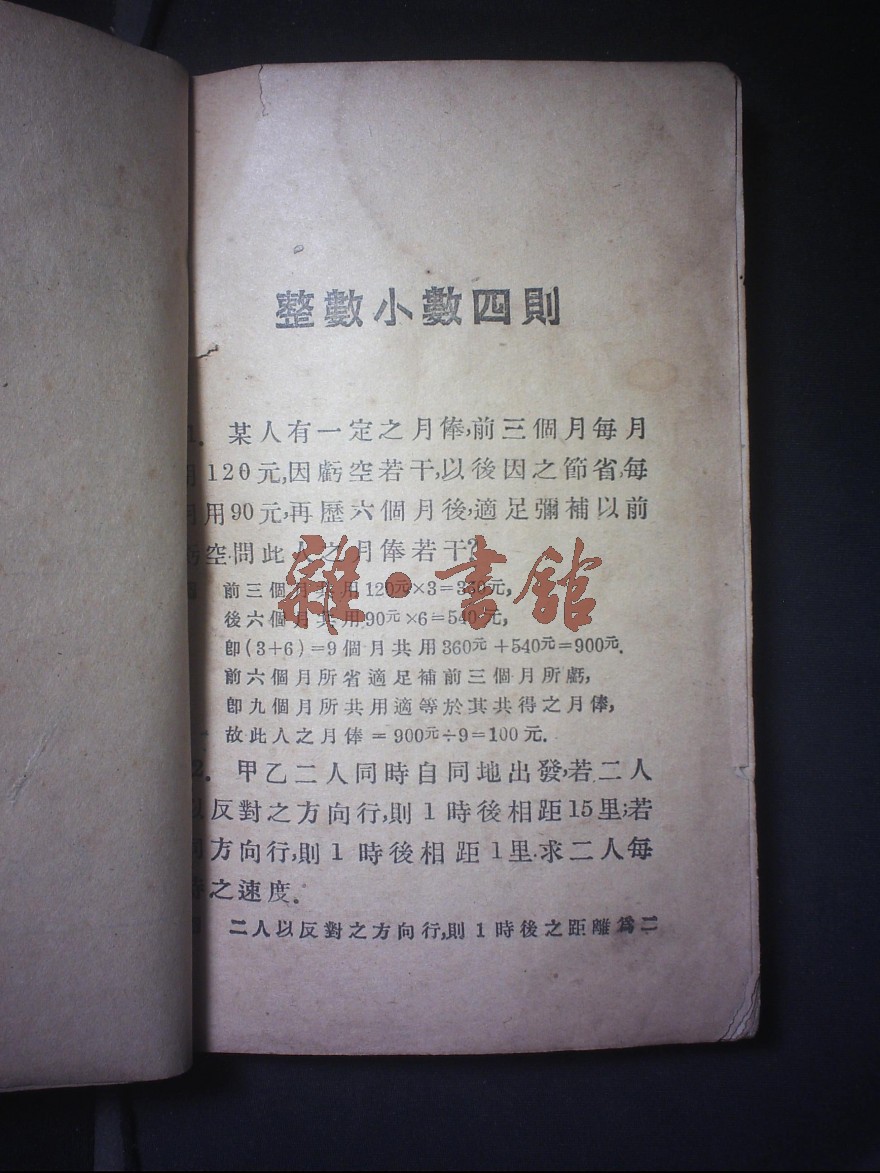 整數小數四則
1. 某人有一定之月俸,前三個月每月
用120元,因虧空若干,以後因之節省,每
月用90元,再歷六個月後,適足彌補以前
虧空.問此人之月俸若干?
雜·書館
前三個月共用120元×3=360元,
後六個月共用90元×6=540元,
卽(3+6)=9個月共用360元+540元=900元.
前六個月所省適足補前三個月所虧,
卽九個月所共用適等於其共得之月俸,
故此人之月俸=900元÷9=100元.
2. 甲乙二人同時自同地出發,若二人
以反對之方向行,則1時後相距15里;若
同方向行,則1時後相距1里.求二人每
時之速度.
二人以反對之方向行,則1時後之距離爲二